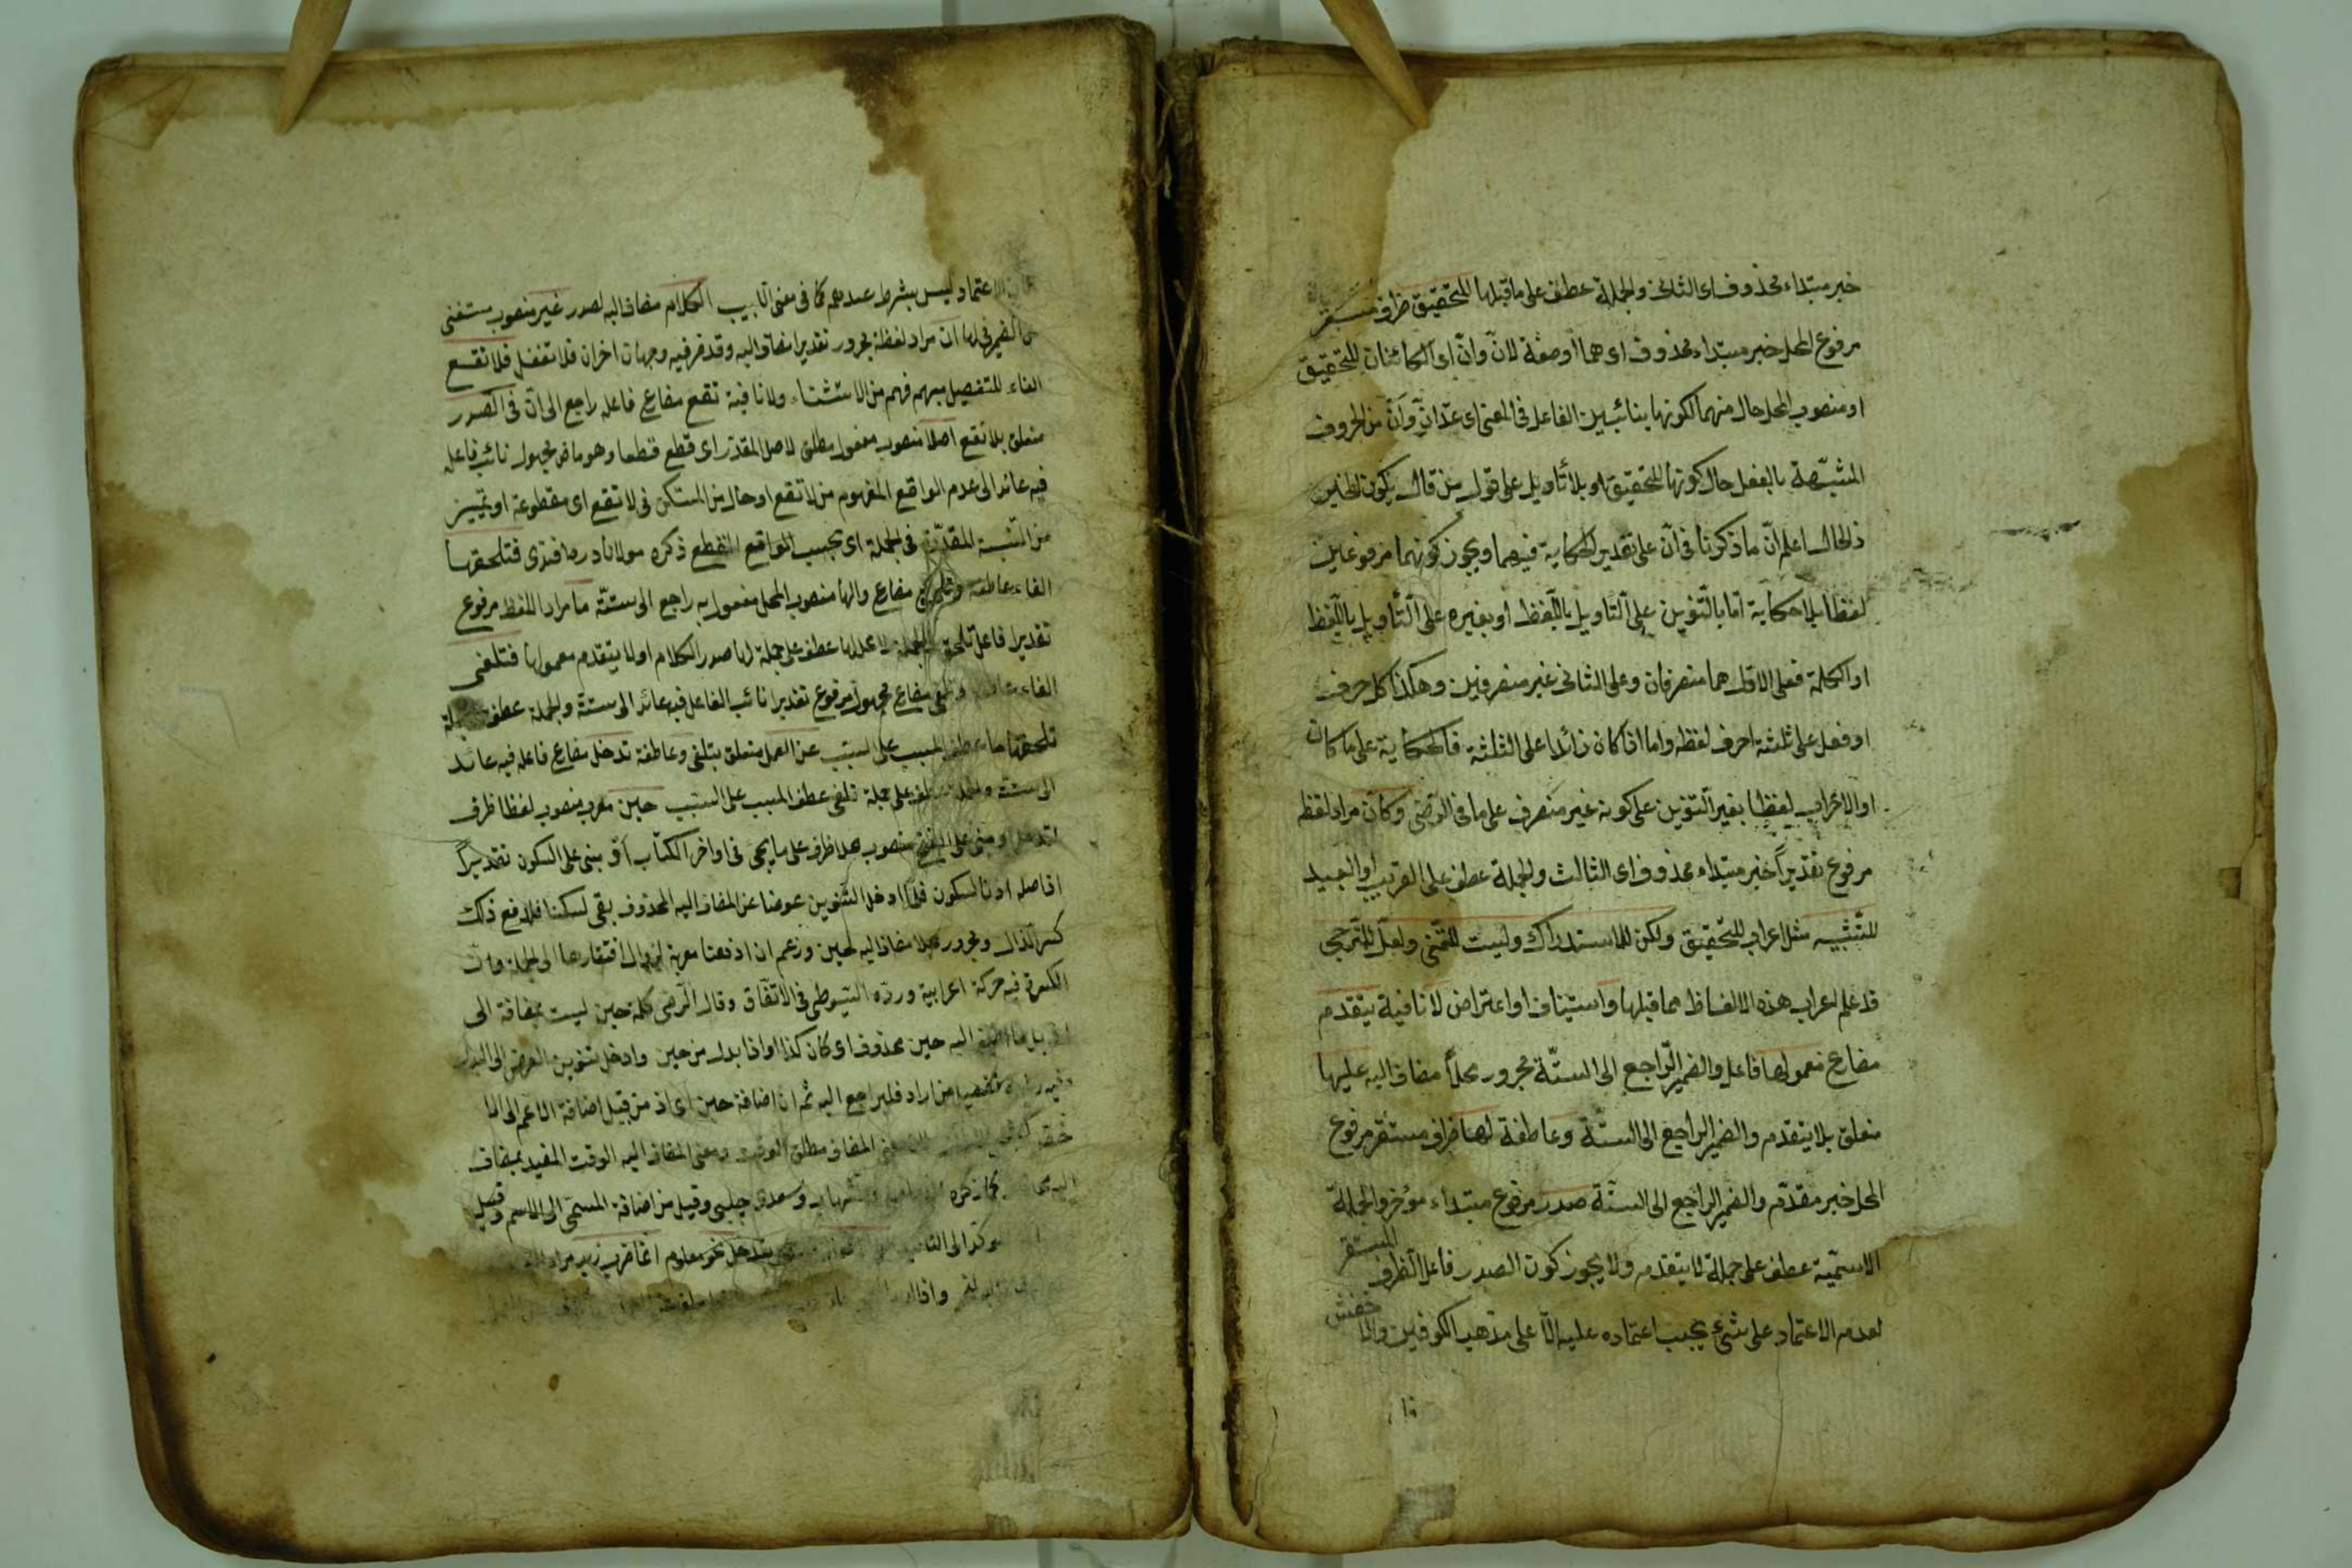 خبر مبتداء محذوف اى الثانى والجملة عطف على ما قبلها للتحقيق ظرف مستقر
مرفوع المحل خبر مبتداء محذوف اى هما أو صفة لانّ وانّ اى الكائنان للتحقيق
او منصوب المحل حال منهما لكونهما بنائبين الفاعل فى المعنى اى عدّ انّ وأنّ من الحروف
المشبّهة بالفعل حال كونهما للتحقيق او بلا تأويل على قول من قال بكون الخبر
ذا لحال اعلم انّ ما ذكرنا فى انّ على تقدير الحكاية فيهما ويجوز كونهما مرفوعين
لفظا بلا حكاية امّا بالتنوين على التأويل باللّفظ او بغيره على التّأويل باللّفظ
او الكلمة فعلى الاوّل هما منصرفان وعلى الثانى غير منصرفين وهكذا كل حرف
او فعل على ثلثة احرف لفظه واما اذا كان زائدا على الثلثة فالحكاية على ما كان
او الاعراب لفظا بغير التنوين على كونه غير منصرف على ما فى الرّضى وكأنّ مراد لفظه
مرفوع تقديراً خبر مبتداء محذوف اى الثالث والجملة عطف على القريب او البعيد
للتّشبيه مثل اعراب للتّحقيق ولكن للاستدراك وليت للتمنّى ولعلّ للتّرجى
قد علم اعراب هذه الالفاظ مما قبلها واستيناف او اعتراض لا نافية يتقدم
مضارع معمولها فاعل والضمير الرّاجع الى الستّة مجرور محلاً مضاف اليه عليها
متعلق بلا يتقدم والضمير الراجع الى الستّة وعاطفة لها ظرف مستقر مرفوع
المحل خبر مقدّم والضمير الراجع الى الستّة صدر مرفوع مبتداء مؤخر والجملة
الاسميّة عطف على جملة لا يتقدم ولا يجوز كون الصدر فاعلا لظرف المستقر
لعدم الاعتماد على شئ يجب اعتماده عليه الّا على مذهب الكوفيين والاخفش
الاعتماد ليس بشرط عندهم كما فى مغنى اللبيب الكلام مضاف اليه لصدر غير منصوب مستثنى
من الضمير فى لها انّ مراد لفظه مجرور تقديرا مضاف اليه وقد مر فيه وجهان اخران فلا تغفل فلا تقع
الفاء للتفصيل مبهم فهم من الاستثناء ولا نافية تقع مضارع فاعله راجع الى انّ فى الصدر
متعلق بلا تقع اصلا منصوب مفعول مطلق لاصل المقدّر اى قطع قطعا وهو ماض مجهول نائب فاعله
فيه عائد الى عدم الواقع المفهوم من لا تقع او حال من المستكن فى لا تقع اى مقطوعة او تمييز
من النّسبة المقدّرة فى الجملة اى بحسب الواقع القطع ذكره مولانا دره افندى فتلحقها
الفاء عاطفة وتلحق مضارع والها منصوب المحل مفعول به راجع الى ستّة ما مراد اللفظ مرفوع
تقديرا فاعل تلحق والجملة لا محل لها عطف على جملة لها صدر الكلام او لا يتقدم معمولها فتلغى
الفاء عاطفة وتلغى مضارع مجهول مرفوع تقديرا نائب الفاعل فيه عائد الى ستة والجملة عطف على جملة
تلحقها ما عطف المسبب على السبب عن العمل متعلق بتلغى وعاطفة تدخل مضارع فاعله فيه عائد
الى ستة والجملة عطف على جملة تلغى عطف المسبب على السبب حين معرب منصوب لفظا ظرف
لتدخل او مبنى على الفتح منصوب محلا ظرف على ما يجئ فى اواخر الكتاب اذ مبنى على السكون تقديراً
اذ اصله اذ بالسكون فلمّا ادخل التنوين عوضا عن المضاف اليه المحذوف بقى ساكنا فلدفع ذلك
كسر الذال ومجرور محلا مضاف اليه لحين وزعم ان اذ هنا معربة لزوال افتقارها الى الجملة وان
الكسرة فيه حركة اعرابية وردّه السّيوطى فى الاتقان وقال الرّضى كلمة حين ليست بمضافة الى
اذ بل ما اضيف اليه حين محذوف اى كان كذا واذ بدل من حين وادخل تنوين العوض الى البدل
تفصيل من اراد فليراجع اليه ثم ان اضافة حين اى اذ من قبيل اضافة الاعم الى الا
خص المضاف مطلق الوقت ومعنى المضاف اليه الوقت المقيد بمضاف
اليه كما ذكره الشهاب وسعدى چلبى وقيل من اضافة المسمّى الى الاسم وقيل
المؤكد الى التأكيد متعلق بتدخل نحو معلوم انما ضرب زيد مراد
واذا